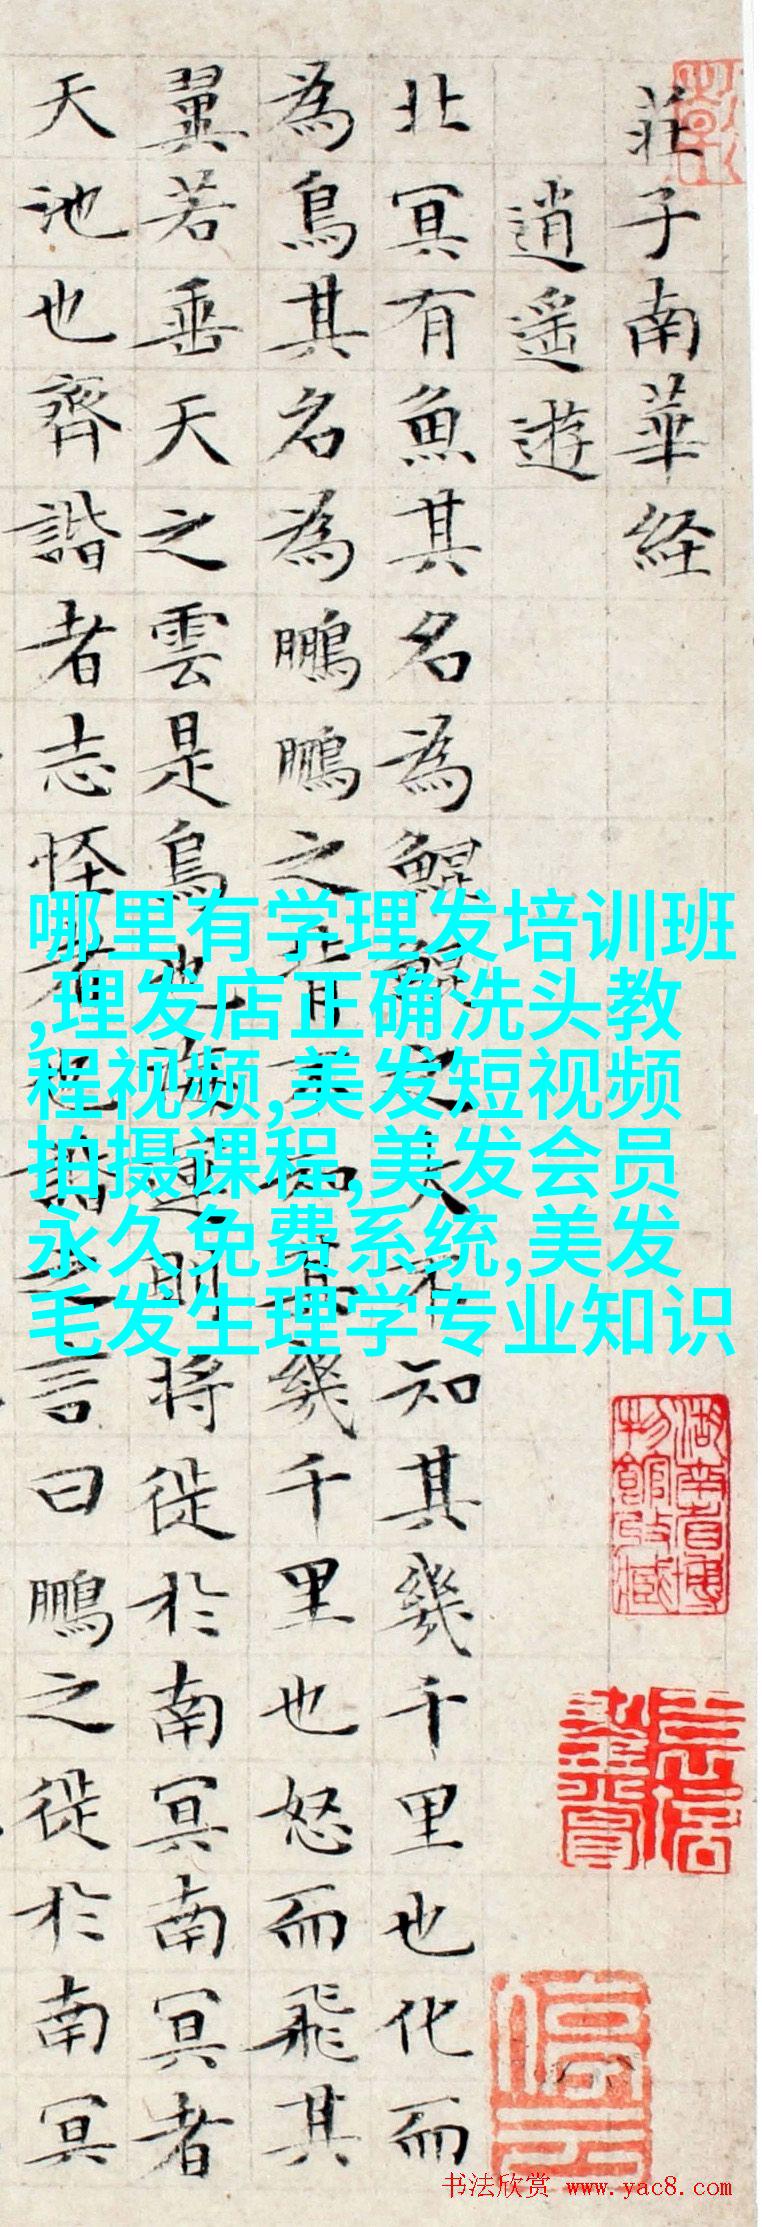 莊子南華経
逍遥遊
北冥有魚其名為鯤鯤之大不知其幾千里也化而
為鳥其名為鵬鵬之背不知其幾千里也怒而飛其
翼若垂天之雲是鳥也海運則将徙於南冥南冥者
天池也齊諧者志怪者也諧之言曰鵬之徙於南冥
哪里有学理发培训班
,理发店正确洗头教
程视频,美发短视频
拍摄课程,美发会员
永久免费系统,美发
毛发生理学专业知识
湖南省博
物館收藏
书法欣赏 www.yac8.com